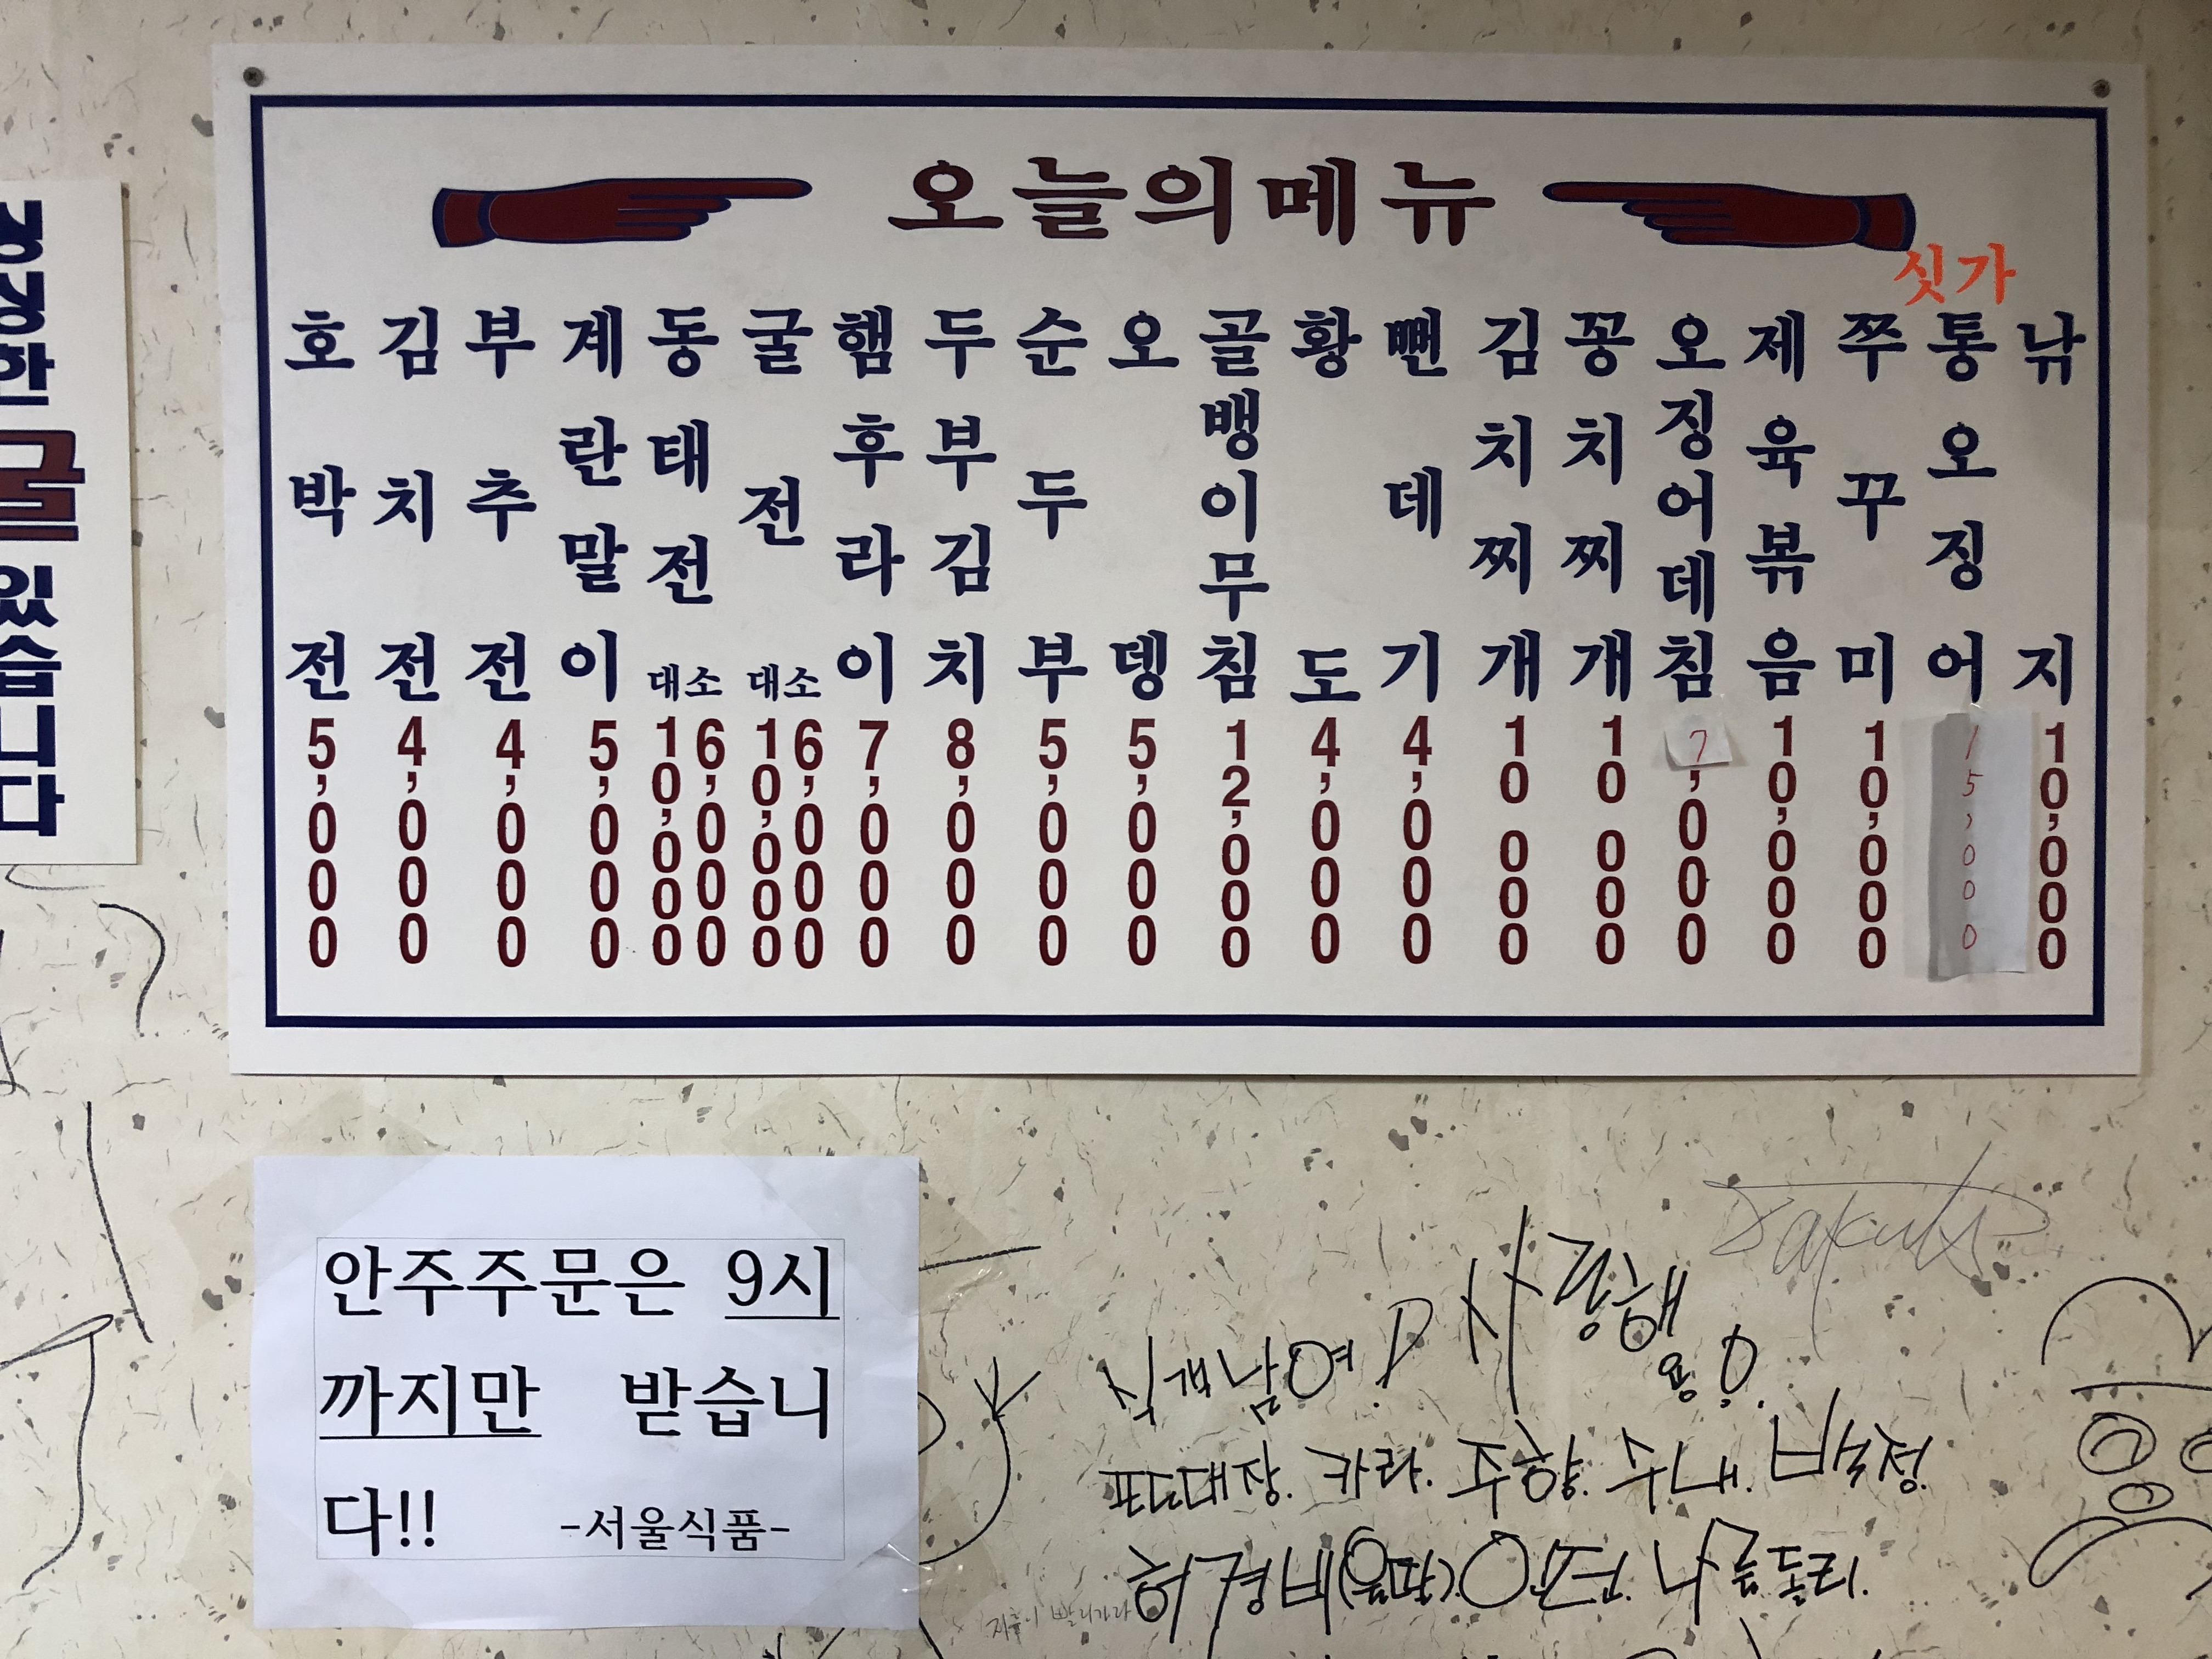 싱싱한 굴 있습니다
오늘의메뉴
싯가
호박전 5,000
김치전 4,000
부추전 4,000
계란말이 5,000
동태전 대 10,000 소 6,000
굴전 대 10,000 소 6,000
햄후라이 7,000
두부김치 8,000
순두부 5,000
오뎅 5,000
골뱅이무침 12,000
황도 4,000
뻔데기 4,000
김치찌개 10 000
꽁치찌개 10 000
오징어데침 7,000
제육볶음 10,000
쭈꾸미 10,000
통오징어 15,000
낚지 10,000
안주주문은 9시
까지만 받습니
다!!
-서울식품-
사랑해
용용.
판대장. 카라. 주향. 수내. 백숙정.
허경비(올빼). 안전. 나름돌리.